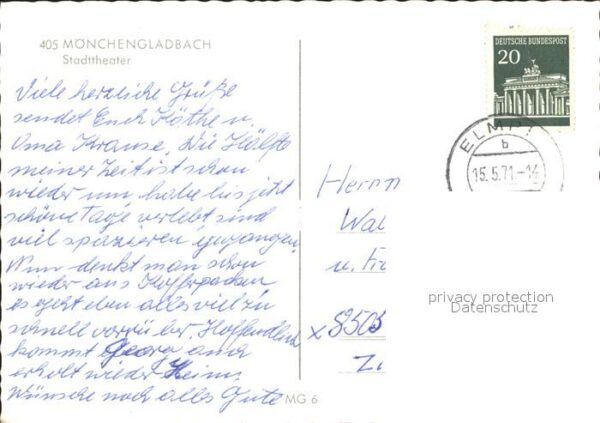 405 MÖNCHENGLADBACH
Stadttheater
DEUTSCHE BUNDESPOST
20
ELMPT
b
15.5.71-14
Viele herzliche Grüße
sendet Euch Käthe u.
Oma Krause. Die Hälfte
meiner Zeit ist schon
wieder um, habe bis jetzt
schöne Tage verlebt sind
viel spazieren gegangen.
Nun denkt man schon
wieder ans Kofferpacken,
es geht eben alles viel zu
schnell vorrüber. Hoffendlich
kommt Georg auch
erholt wieder Heim.
Wünsche noch alles Gute
Herrn
Wal
u. Fr
x 8505
Z
privacy protection
Datenschutz
MG 6